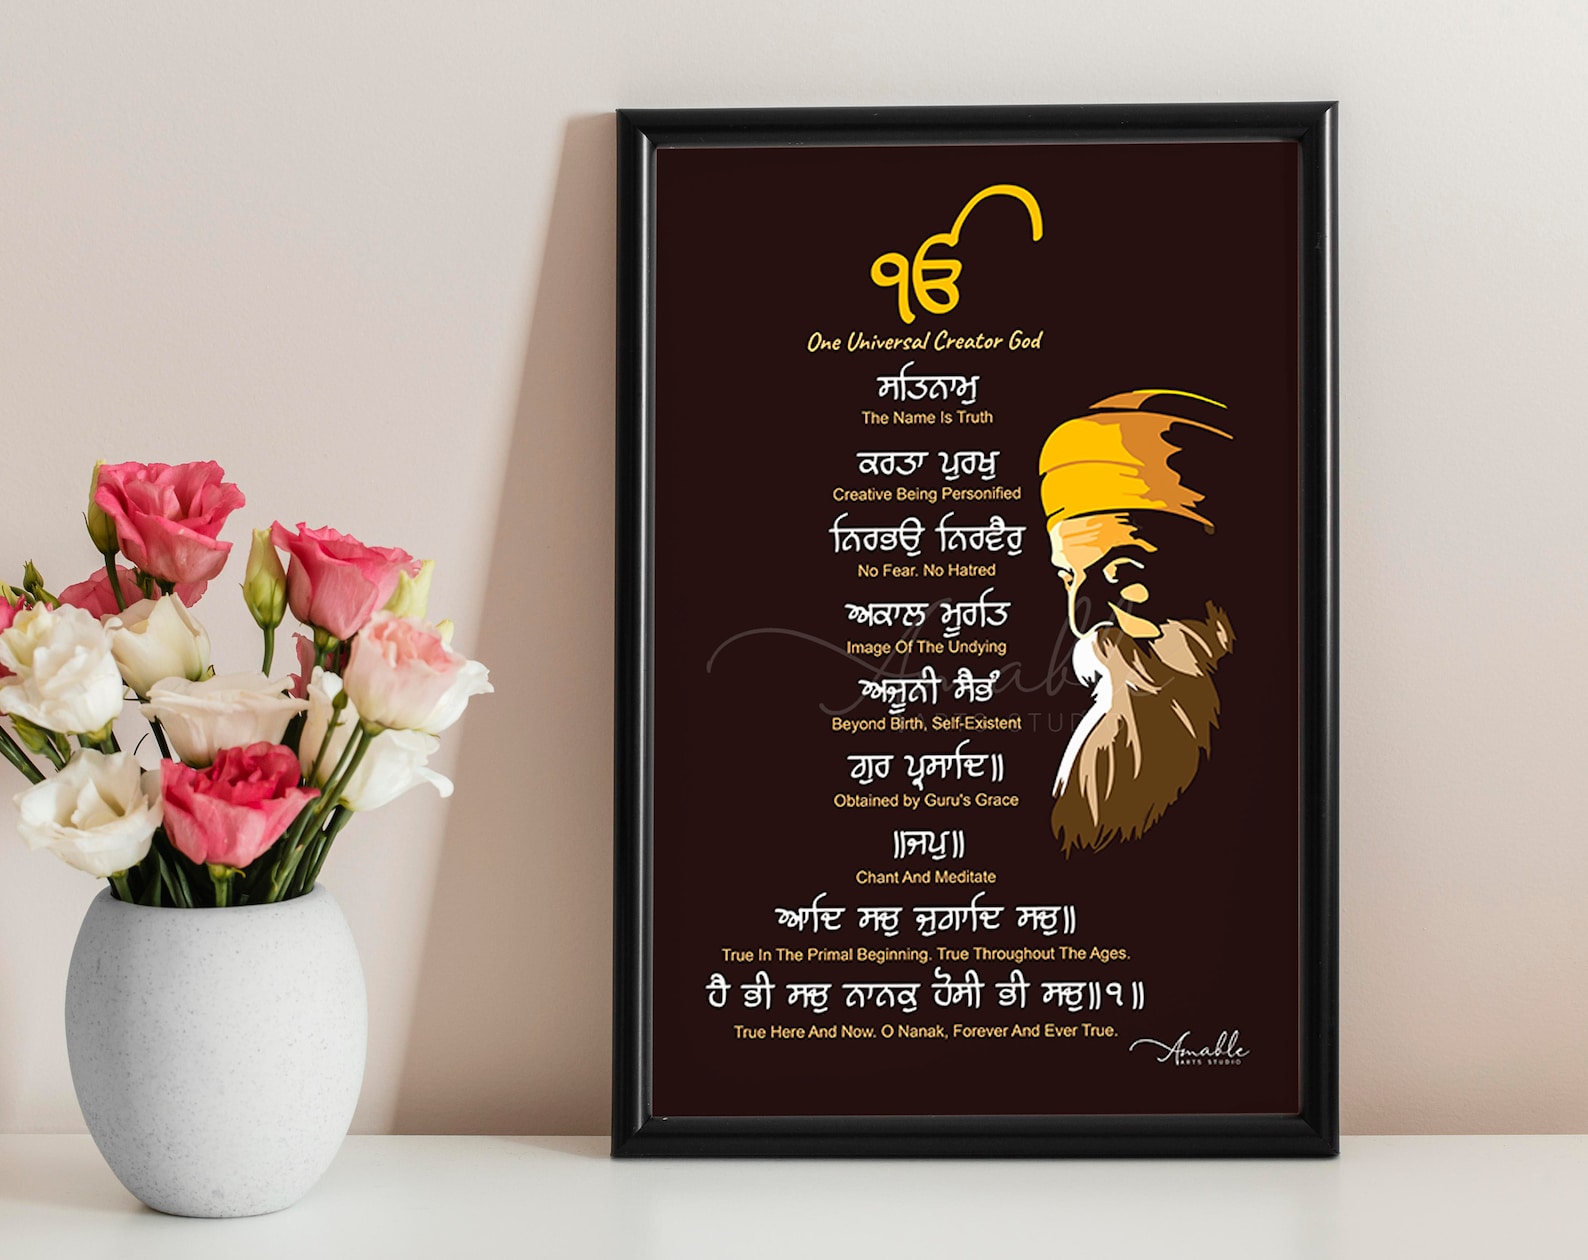 ੴ
One Universal Creator God
ਸਤਿਨਾਮੁ
The Name Is Truth
ਕਰਤਾ ਪੁਰਖੁ
Creative Being Personified
ਨਿਰਭਉ ਨਿਰਵੈਰੁ
No Fear. No Hatred
ਅਕਾਲ ਮੂਰਤਿ
Image Of The Undying
ਅਜੂਨੀ ਸੈਭੰ
Beyond Birth, Self-Existent
ਗੁਰ ਪ੍ਰਸਾਦਿ॥
Obtained by Guru's Grace
॥ਜਪੁ॥
Chant And Meditate
ਆਦਿ ਸਚੁ ਜੁਗਾਦਿ ਸਚੁ॥
True In The Primal Beginning. True Throughout The Ages.
ਹੈ ਭੀ ਸਚੁ ਨਾਨਕੁ ਹੋਸੀ ਭੀ ਸਚੁ॥੧॥
True Here And Now. O Nanak, Forever And Ever True.
Amable
ARTS STUDIO
Amable
ARTS STUDIO